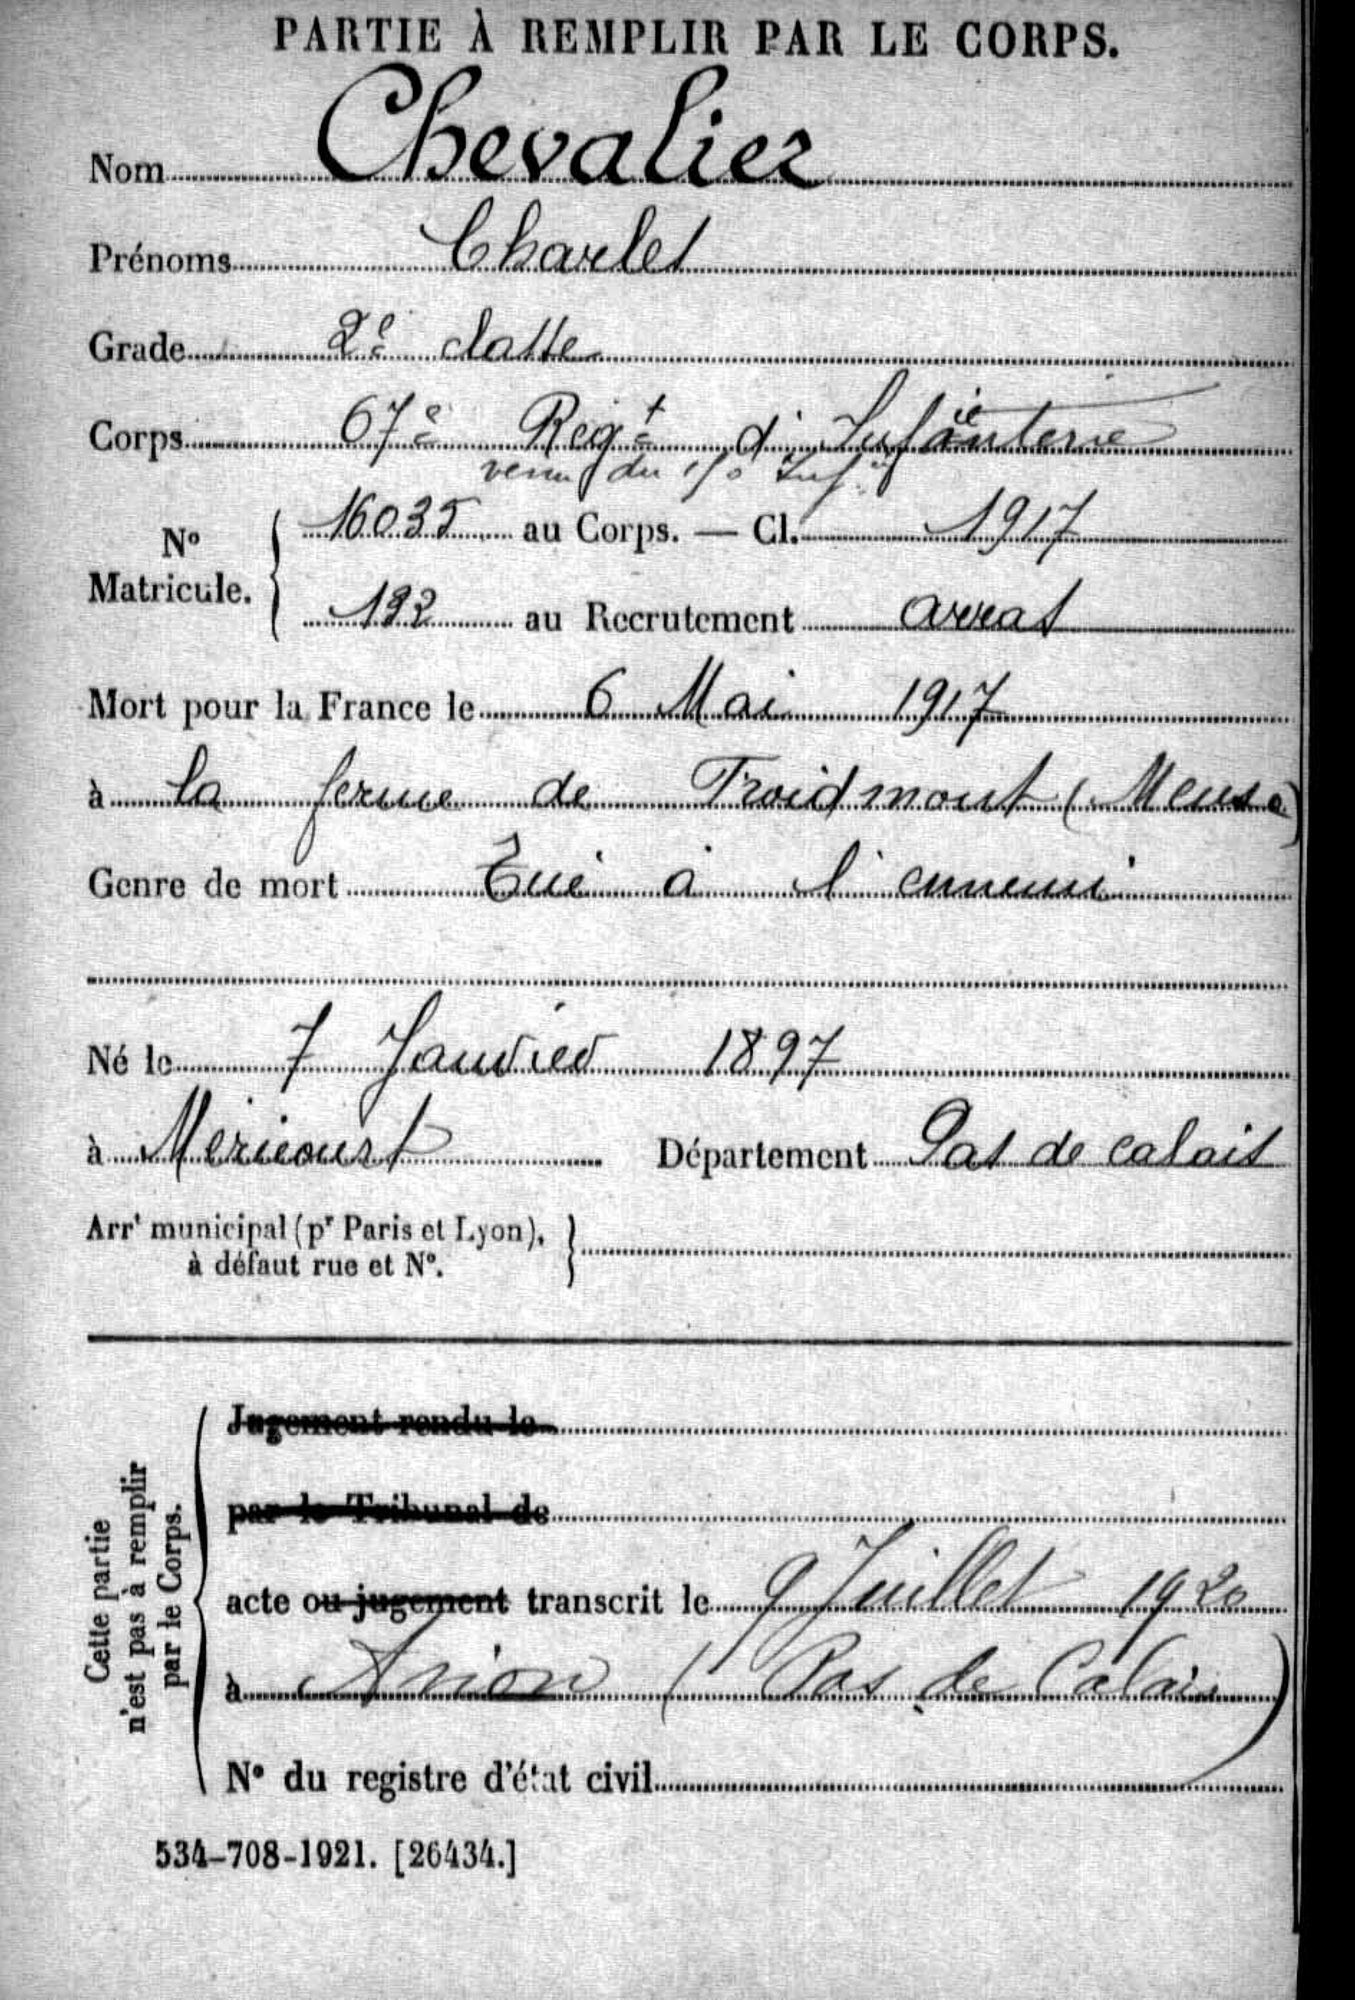 PARTIE À REMPLIR PAR LE CORPS.
Nom Chevalier
Prénoms Charles
Grade 2e classe
Corps 67e Régt d'Infanterie
venu du Inf.ie
No Matricule. 16035 au Corps. — Cl. 1917
192 au Recrutement Arras
Mort pour la France le 6 Mai 1917
à la ferme de Froidmont (Meuse)
Genre de mort Tué à l'ennemi
Né le 7 Janvier 1897
à Méricourt Département Pas de calais
Arrt municipal (pr Paris et Lyon),
à défaut rue et No.
Cette partie
n'est pas à remplir
par le Corps.
Jugement rendu le
par le Tribunal de
acte ou jugement transcrit le 9 Juillet 1920
à (Pas de Calais)
No du registre d'état civil
534-708-1921. [26434.]